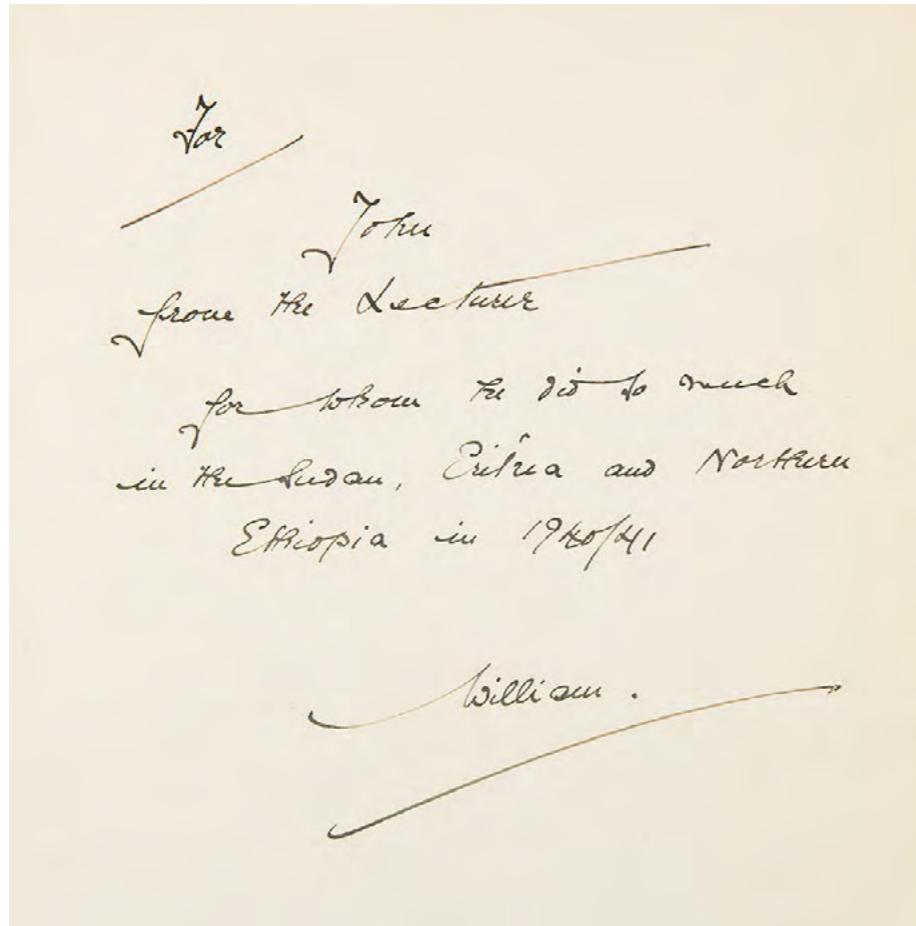 For
John
from the Lecturer
for whom he did so much
in the Sudan, Eritrea and Northern
Ethiopia in 1940/41
William.